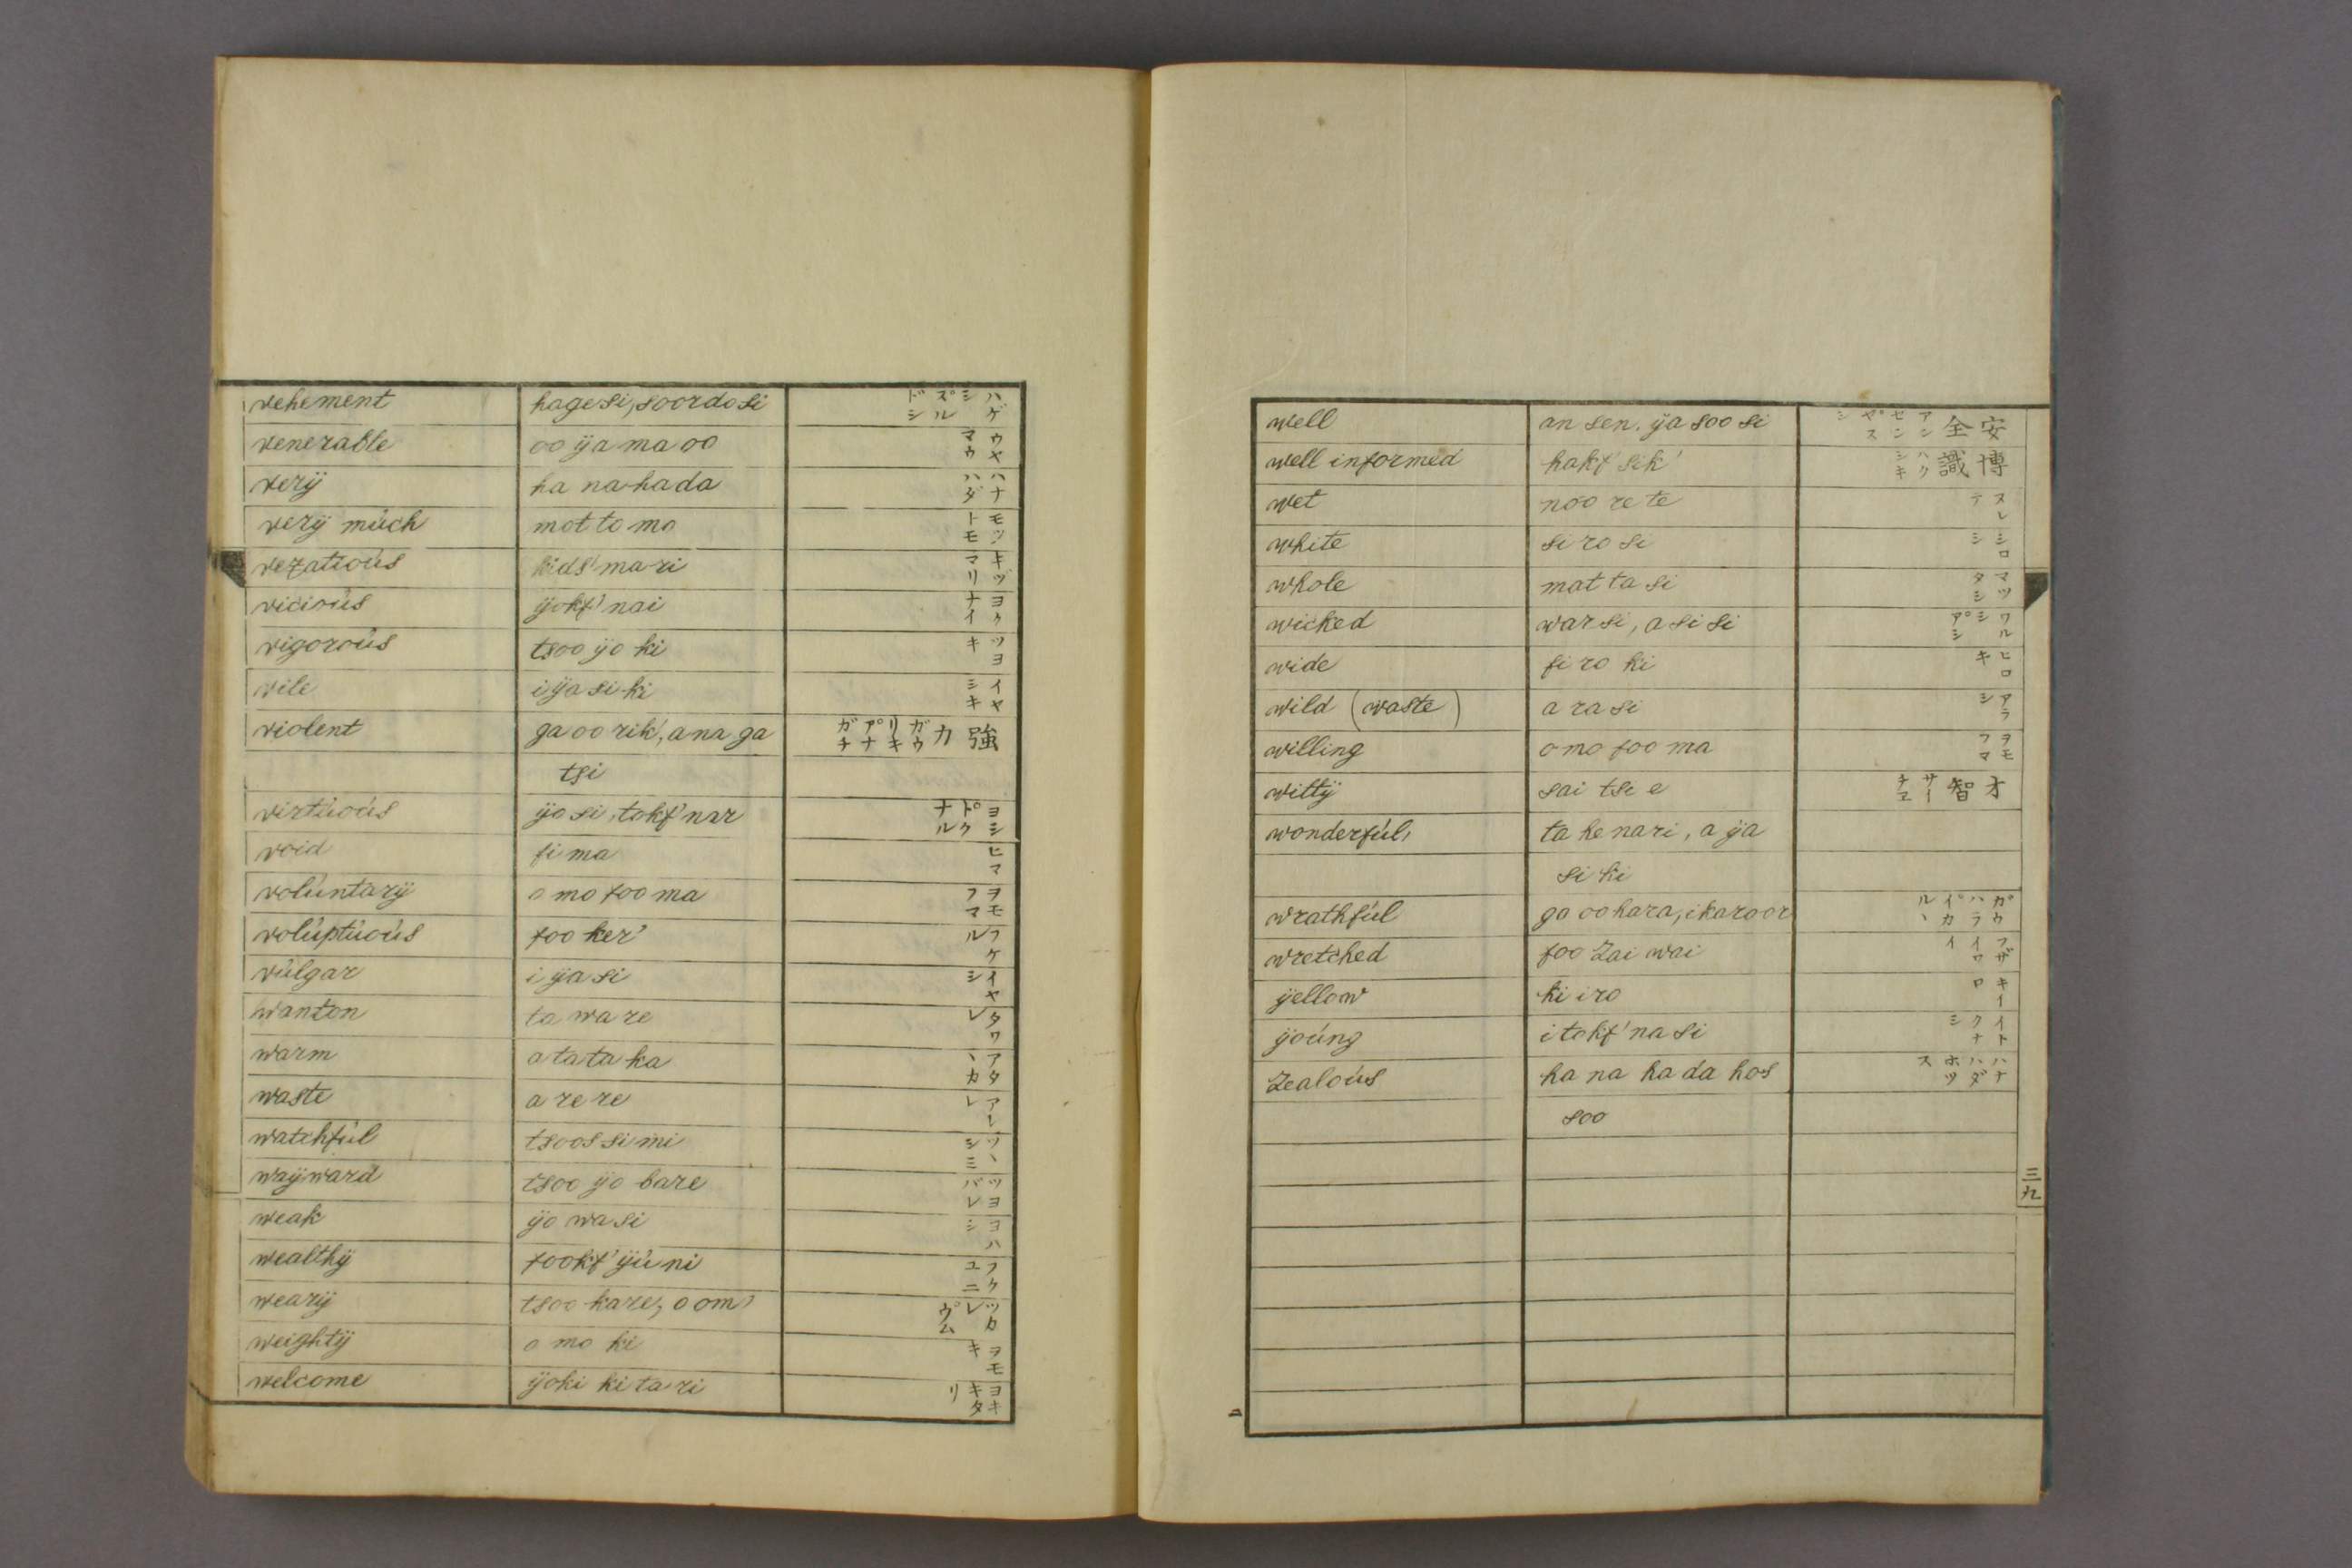 vehement hagesi, soordosi ハゲシスルドシ
venerable oo ÿa ma oo ウヤマウ
verÿ ha na hada ハナハダ
verÿ mŭch mot to mo モツトモ
vezatioŭs kids' mari キヅマリ
vicioŭs ÿokf' nai ヨクナイ
vigoroŭs tsoo ÿo ki ツヨキ
vile i ÿa si ki イヤシキ
violent ga oo rik', ana ga 強力ガウリキアナガチ
tsi
virtŭoŭs ÿo si, tokf' nar ヨシトクナル
void fi ma ヒマ
volŭntarÿ o mo foo ma ヲモフマ
volŭptŭoŭs foo ker' フケル
vŭlgar i ÿa si イヤシ
wanton ta wa re タワレ
warm a ta ta ka アタヽカ
waste a re re アレレ
watchfŭl tsoos si mi ツヽシミ
waÿward tsoo ÿo bare ツヨバレ
weak ÿo wa si ヨハシ
wealthÿ fookf' ÿŭ ni フクユニ
wearÿ tsoo kare, o om' ツカレウム
weightÿ o mo ki ヲモキ
welcome ÿoki ki ta ri ヨキキタリ
well an sen. ÿa soo si 安全アンセンヤスシ
well informed hakf' sik' 博識ハクシキ
wet noo re te ヌレテ
white si ro si シロシ
whole mat ta si マツタシ
wicked war si, a si si ワルシアシシ
wide fi ro ki ヒロキ
wild (waste) a ra si アラシ
willing o mo foo ma ヲモフマ
wittÿ sai tsi e 才智サイチヱ
wonderfŭl, ta he nari, a ÿa
si ki
wrathfŭl ga oo hara, ikaroor ガウハライカルヽ
wretched foo zai wai フザイワイ
ÿellow ki iro キイロ
ÿoŭng i tokf' na si イトクナシ
zealoŭs ha na ha da hos ハナハダホツス
soo
三九
二